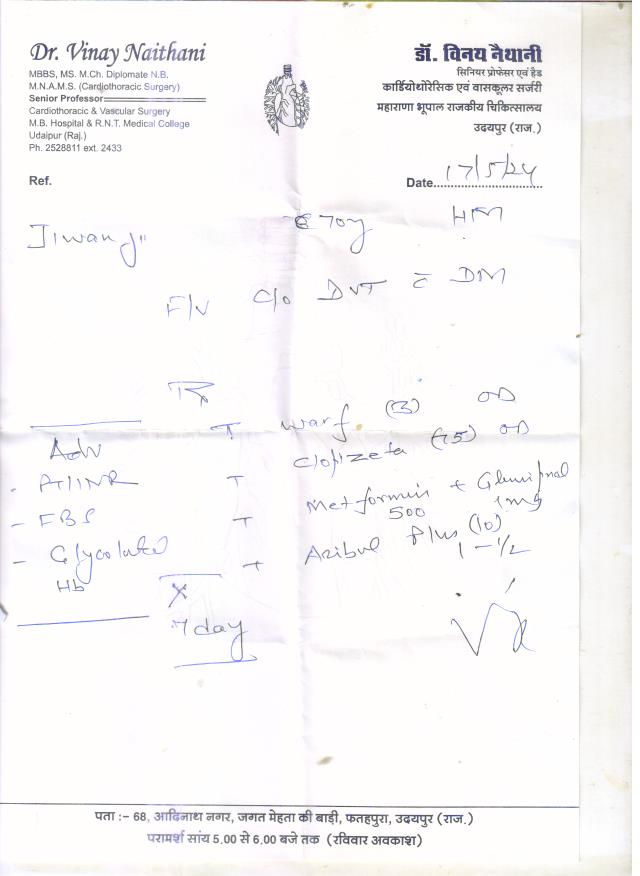 Dr. Vinay Naithani
MBBS, MS. M.Ch. Diplomate N.B.
M.N.A.M.S. (Cardiothoracic Surgery)
Senior Professor
Cardiothoracic & Vascular Surgery
M.B. Hospital & R.N.T. Medical College
Udaipur (Raj.)
Ph. 2528811 ext. 2433
डॉ. विनय नैथानी
सिनियर प्रोफेसर एवं हैड
कार्डियोथोरेसिक एवं वासकूलर सर्जरी
महाराणा भूपाल राजकीय चिकित्सालय
उदयपुर (राज.)
Ref.
Date 17/5/24
70y
Jiwan ji
F/V C/o DVT c̄ DM
Rx
Adv
T warf (3) OD
T (75) OD
- PT/INR
T Metformin + 1mg
500
- FBS
T Plus (10)
1 - 1/2
-
Hb
T
x
7 day
पता :– 68, आदिनाथ नगर, जगत मेहता की बाड़ी, फतहपुरा, उदयपुर (राज.)
परामर्श सांय 5.00 से 6.00 बजे तक (रविवार अवकाश)